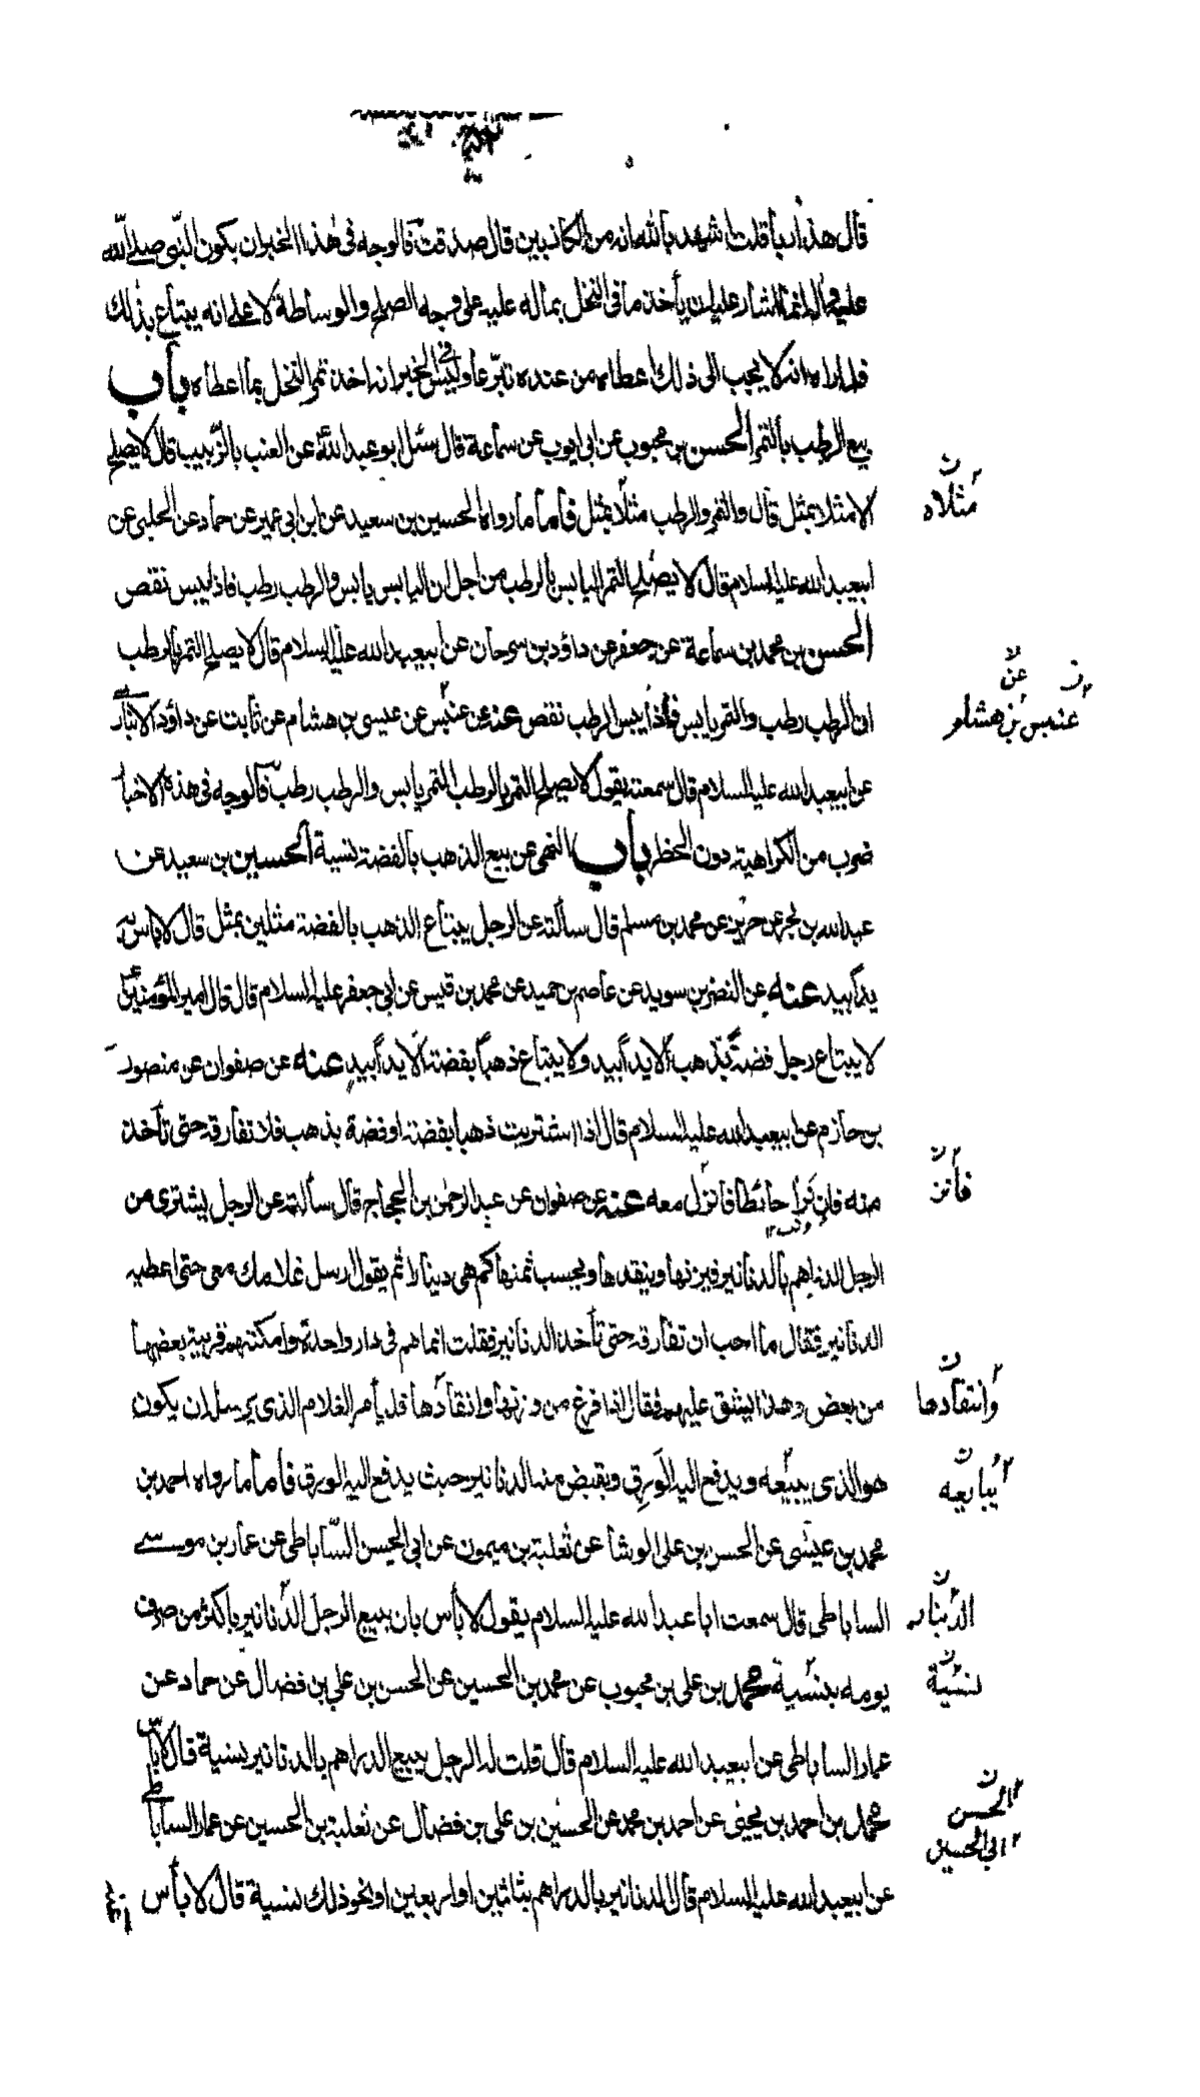 قال هذا ربا قلت اشهد بالله انه من الكاذبين قال صدقت فالوجه فى هذا الخبر ان يكون النبى صلى الله
عليه وآله انما اشار عليه ان يأخذ ما فى النخل بماله عليه على وجه الصلح والوساطة لا على انه يبتاع بذلك
فلما راه انه لا يجيب الى ذلك اعطاه من عنده تبرعا وليس فى الخبر انه اخذ تمر النخل بما اعطاه باب
بيع الرطب بالتمر الحسن بن محبوب عن ابى ايوب عن سماعة قال سئل ابو عبد الله ع عن العنب بالزبيب قال لا يصلح
الا مثلا بمثل قال والتمر والرطب مثلا بمثل فأما ما رواه الحسين بن سعيد عن ابن ابى عمير عن حماد عن الحلبى عن
ابيعبد الله عليه السلام قال لا يصلح التمر اليابس بالرطب من اجل ان اليابس يابس والرطب رطب فاذا يبس نقص
الحسن بن محمد بن سماعة عن جعفر عن داؤد بن سرحان عن ابيعبد الله عليه السلام قال لا يصلح التمر بالرطب
ان الرطب رطب والتمر يابس فاذا يبس الرطب نقص عنه عن عنبس عن عيسى بن هشام عن ثابت عن داؤد الابزارى
عن ابيعبد الله عليه السلام قال سمعته يقول لا يصلح التمر بالرطب التمر يابس والرطب رطب فالوجه فى هذه الاخبار
ضرب من الكراهية دون الحظر باب النهى عن بيع الذهب بالفضة نسية الحسين بن سعيد عن
عبد الله بن بحر عن حريز عن محمد بن مسلم قال سألته عن الرجل يبتاع الذهب بالفضة مثلين بمثل قال لا بأس به
يدا بيد عنه عن النضر بن سويد عن عاصم بن حميد عن محمد بن قيس عن ابى جعفر عليه السلام قال قال امير المؤمنين ع
لا يبتاع رجل فضة بذهب الا يدا بيد ولا يبتاع ذهبا بفضة الا يدا بيد عنه عن صفوان عن منصور
بن حازم عن ابيعبد الله عليه السلام قال اذا اشتريت ذهبا بفضة او فضة بذهب فلا تفارقه حتى تأخذ
منه فان نزا حائطا فانزل معه عنه عن صفوان عن عبد الرحمن بن الحجاج قال سألته عن الرجل يشترى من
الرجل الدراهم بالدنانير فيزنها وينقدها ويحسب ثمنها كم هى دينارا ثم يقول ارسل غلامك معى حتى اعطيه
الدنانير فقال ما احب ان تفارقه حتى تأخذ الدنانير فقلت انما هم فى دار واحدة وامكنتهم قريبة بعضها
من بعض وهذا يشق عليهم فقال اذا فرغ من وزنها وانقادها فليأمر الغلام الذى يرسله ان يكون
هو الذى يبيعه ويدفع اليه الورق ويقبض منه الدنانير حيث يدفع اليه الورق فأما ما رواه احمد بن
محمد بن عيسى عن الحسن بن على الوشا عن ثعلبة بن ميمون عن ابى الحسن الساباطى عن عمار بن موسى
الساباطى قال سمعت ابا عبد الله عليه السلام يقول لا بأس بان يبيع الرجل الدنانير باكثر من صرف
يومه بنسية محمد بن على بن محبوب عن محمد بن الحسين عن الحسن بن على بن فضال عن حماد عن
عمار الساباطى عن ابيعبد الله عليه السلام قال قلت له الرجل يبيع الدراهم بالدنانير بنسية قال لا بأس
محمد بن احمد بن يحيى عن احمد بن محمد عن الحسين بن على بن فضال عن ثعلبة بن الحسين عن عمار الساباطى
عن ابيعبد الله عليه السلام قال الدنانير بالدراهم بثلثين او اربعين او نحو ذلك نسية قال لا بأس
مثلاه
عن
عنبس بن هشام
فانز
وانتقادها
يبايعه
الدينار
نسئية
الحسن
ابى الحسين